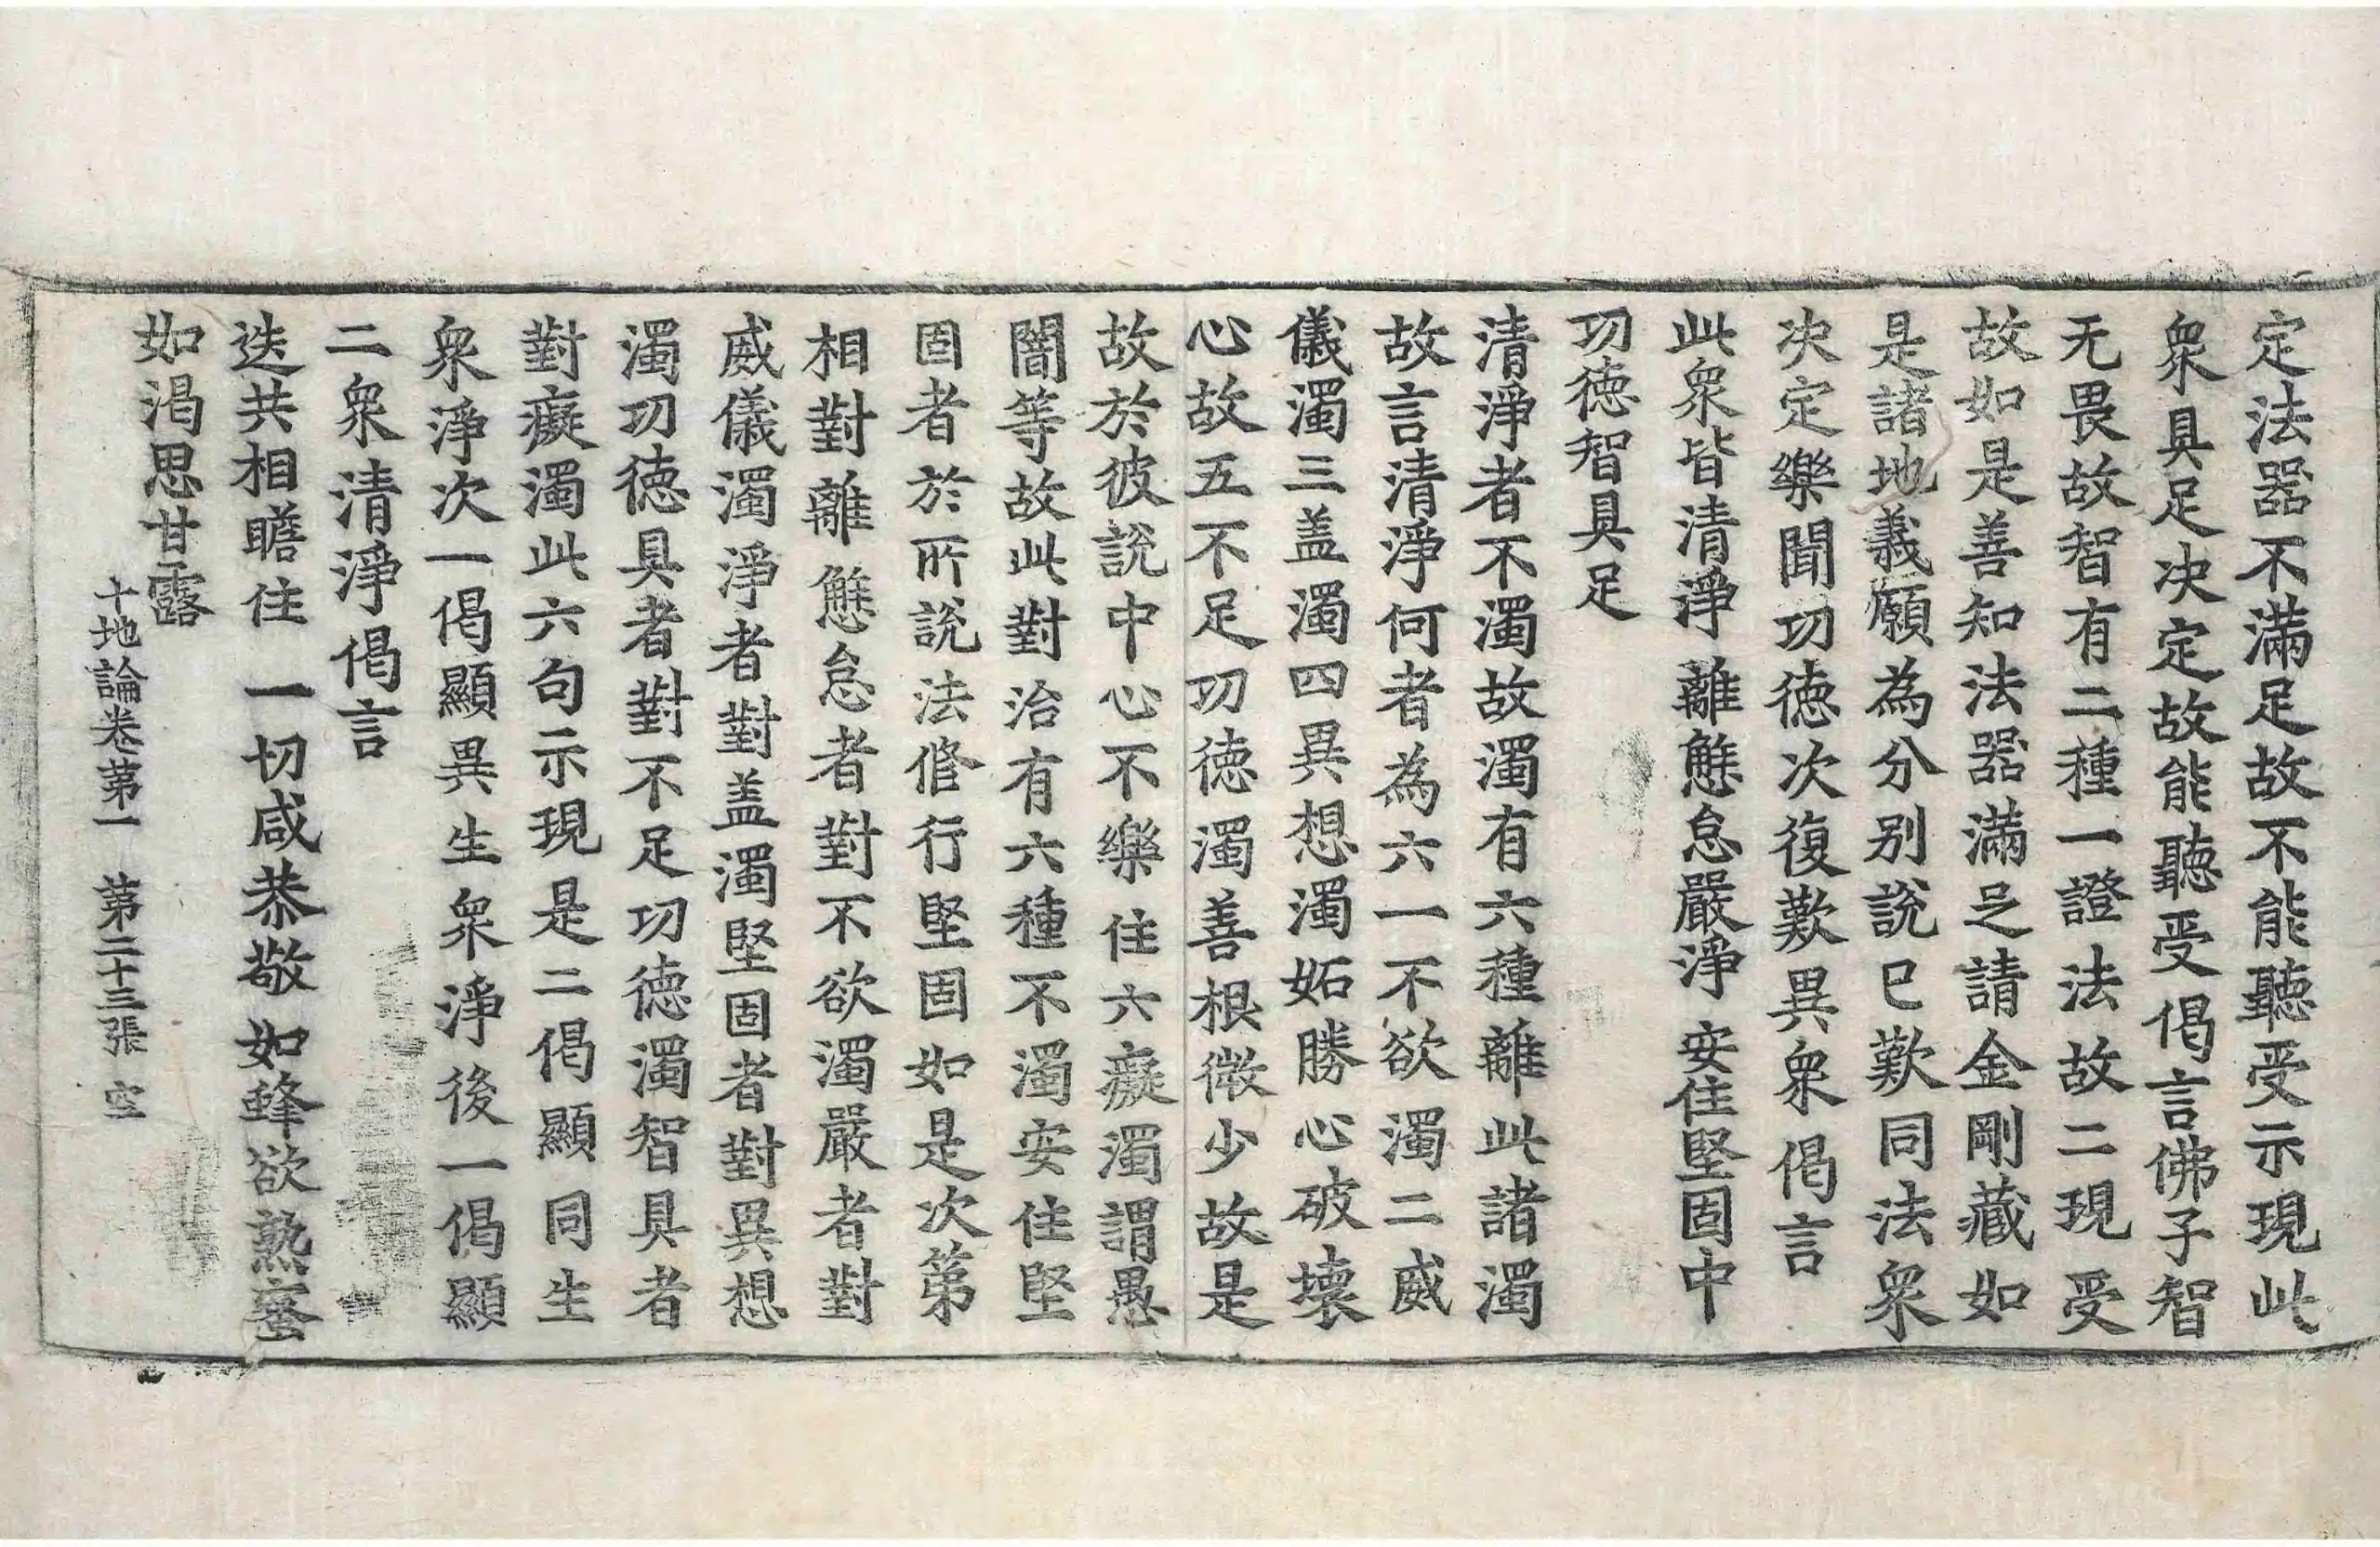 定法器不滿足故不能聽受示現此
衆具足决定故能聽受偈言佛子智
无畏故智有二種一證法故二現受
故如是善知法器滿足請金剛藏如
是諸地義願為分别說已歎同法衆
决定樂聞功徳次復歎異衆偈言
此衆皆清淨 離懈怠嚴淨 安住堅固中
功徳智具足
清淨者不濁故濁有六種離此諸濁
故言清淨何者為六一不欲濁二威
儀濁三盖濁四異想濁妬勝心破壞
心故五不足功徳濁善根微少故是
故於彼說中心不樂住六癡濁謂愚
闇等故此對治有六種不濁安住堅
固者於所說法修行堅固如是次第
相對離懈怠者對不欲濁嚴者對
威儀濁淨者對盖濁堅固者對異想
濁功徳具者對不足功徳濁智具者
對癡濁此六句示現是二偈顯同生
衆淨次一偈顯異生衆淨後一偈顯
二衆清淨偈言
迭共相瞻住 一切咸恭敬 如蜂欲熟蜜
如渴思甘露
十地論卷第一 第二十三張 空